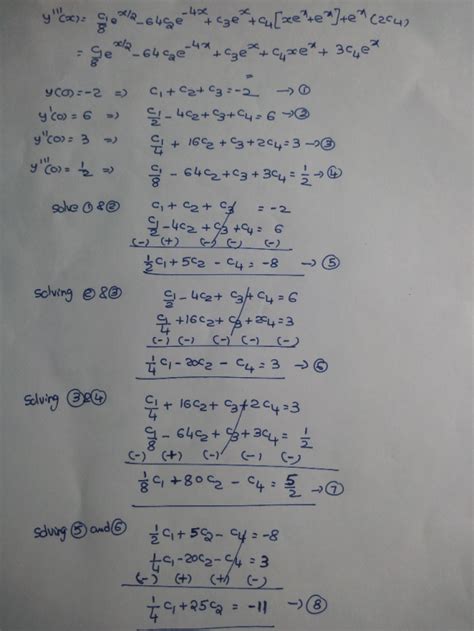 y'''(x) = c₁/8 e^(x/2) - 64c₂e^(-4x) + c₃e^x + c₄[xe^x + e^x] + e^x(2c₄)
= c₁/8 e^(x/2) - 64c₂e^(-4x) + c₃e^x + c₄xe^x + 3c₄e^x
=
y(0) = -2 => c₁ + c₂ + c₃ = -2 → ①
y'(0) = 6 => c₁/2 - 4c₂ + c₃ + c₄ = 6 → ②
y''(0) = 3 => c₁/4 + 16c₂ + c₃ + 2c₄ = 3 → ③
y'''(0) = 1/2 => c₁/8 - 64c₂ + c₃ + 3c₄ = 1/2 → ④
solve ① & ② c₁ + c₂ + c₃ = -2
c₁/2 - 4c₂ + c₃ + c₄ = 6
(-) (+) (-) (-) (-)
1/2 c₁ + 5c₂ - c₄ = -8 → ⑤
solving ② & ③ c₁/2 - 4c₂ + c₃ + c₄ = 6
c₁/4 + 16c₂ + c₃ + 2c₄ = 3
(-) (-) (-) (-) (-)
1/4 c₁ - 20c₂ - c₄ = 3 → ⑥
solving ③ & ④ c₁/4 + 16c₂ + c₃ + 2c₄ = 3
c₁/8 - 64c₂ + c₃ + 3c₄ = 1/2
(-) (+) (-) (-) (-)
1/8 c₁ + 80c₂ - c₄ = 5/2 → ⑦
solving ⑤ and ⑥ 1/2 c₁ + 5c₂ - c₄ = -8
1/4 c₁ - 20c₂ - c₄ = 3
(-) (+) (+) (-)
1/4 c₁ + 25c₂ = -11 → ⑧